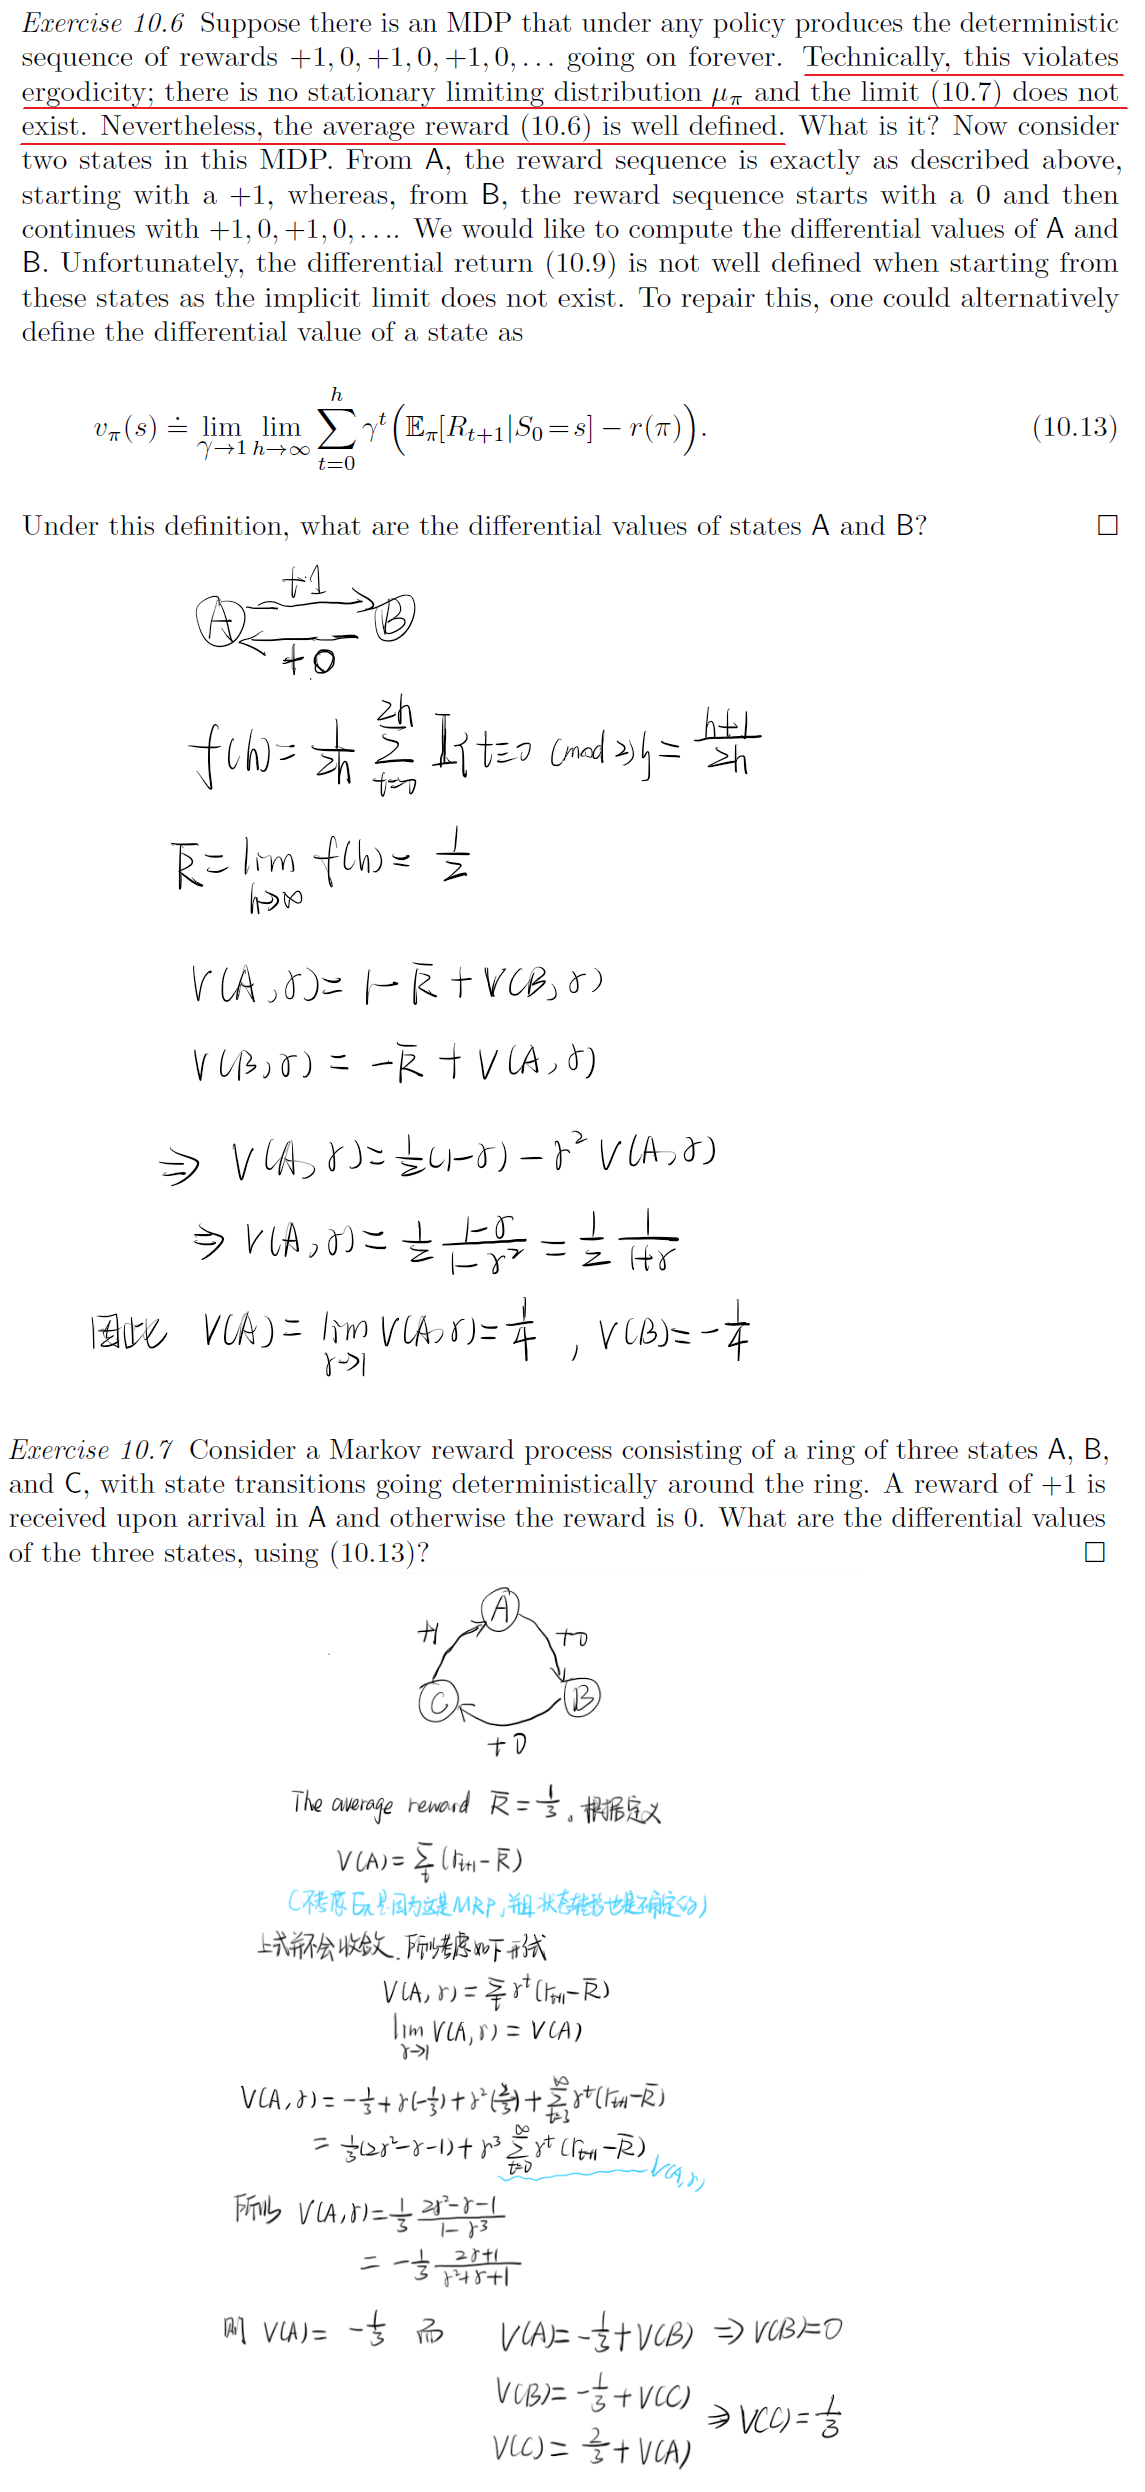 Exercise 10.6 Suppose there is an MDP that under any policy produces the deterministic
sequence of rewards +1, 0, +1, 0, +1, 0, ... going on forever. Technically, this violates
ergodicity; there is no stationary limiting distribution μπ and the limit (10.7) does not
exist. Nevertheless, the average reward (10.6) is well defined. What is it? Now consider
two states in this MDP. From A, the reward sequence is exactly as described above,
starting with a +1, whereas, from B, the reward sequence starts with a 0 and then
continues with +1, 0, +1, 0, .... We would like to compute the differential values of A and
B. Unfortunately, the differential return (10.9) is not well defined when starting from
these states as the implicit limit does not exist. To repair this, one could alternatively
define the differential value of a state as
vπ(s) ≐ lim γ→1 lim h→∞ Σ_{t=0}^{h} γ^t (𝔼π[R_{t+1}|S_0=s] − r(π)). (10.13)
Under this definition, what are the differential values of states A and B? □
+1
A B
+0
f(h) = 1/2h Σ_{t=0}^{2h} 𝕀{t=0 (mod 2)} = (h+1)/2h
R̄ = lim_{h→∞} f(h) = 1/2
V(A,γ) = 1−R̄ + V(B,γ)
V(B,γ) = −R̄ + V(A,γ)
⇒ V(A,γ) = 1/2(1−γ) − γ² V(A,γ)
⇒ V(A,γ) = 1/2 (1−γ)/(1−γ²) = 1/2 1/(1+γ)
因此 V(A) = lim_{γ→1} V(A,γ) = 1/4 , V(B) = −1/4
Exercise 10.7 Consider a Markov reward process consisting of a ring of three states A, B,
and C, with state transitions going deterministically around the ring. A reward of +1 is
received upon arrival in A and otherwise the reward is 0. What are the differential values
of the three states, using (10.13)? □
A
+1 +0
C B
+0
The average reward R̄ = 1/3 。根据定义
V(A) = Σ_t (r_{t+1} − R̄)
(不考虑Eπ是因为这是MRP,并且状态转移也是确定的)
上式并不会收敛.所以考虑如下形式
V(A,γ) = Σ_t γ^t (r_{t+1} − R̄)
lim_{γ→1} V(A,γ) = V(A)
V(A,γ) = −1/3 + γ(−1/3) + γ²(2/3) + Σ_{t=3}^{∞} γ^t (r_{t+1} − R̄)
= 1/3(2γ²−γ−1) + γ³ Σ_{t=0}^{∞} γ^t (r_{t+1} − R̄) V(A,γ)
所以 V(A,γ) = 1/3 (2γ²−γ−1)/(1−γ³)
= −1/3 (2γ+1)/(γ²+γ+1)
则 V(A) = −1/3 而 V(A) = −1/3 + V(B) ⇒ V(B) = 0
V(B) = −1/3 + V(C)
⇒ V(C) = 1/3
V(C) = 2/3 + V(A)